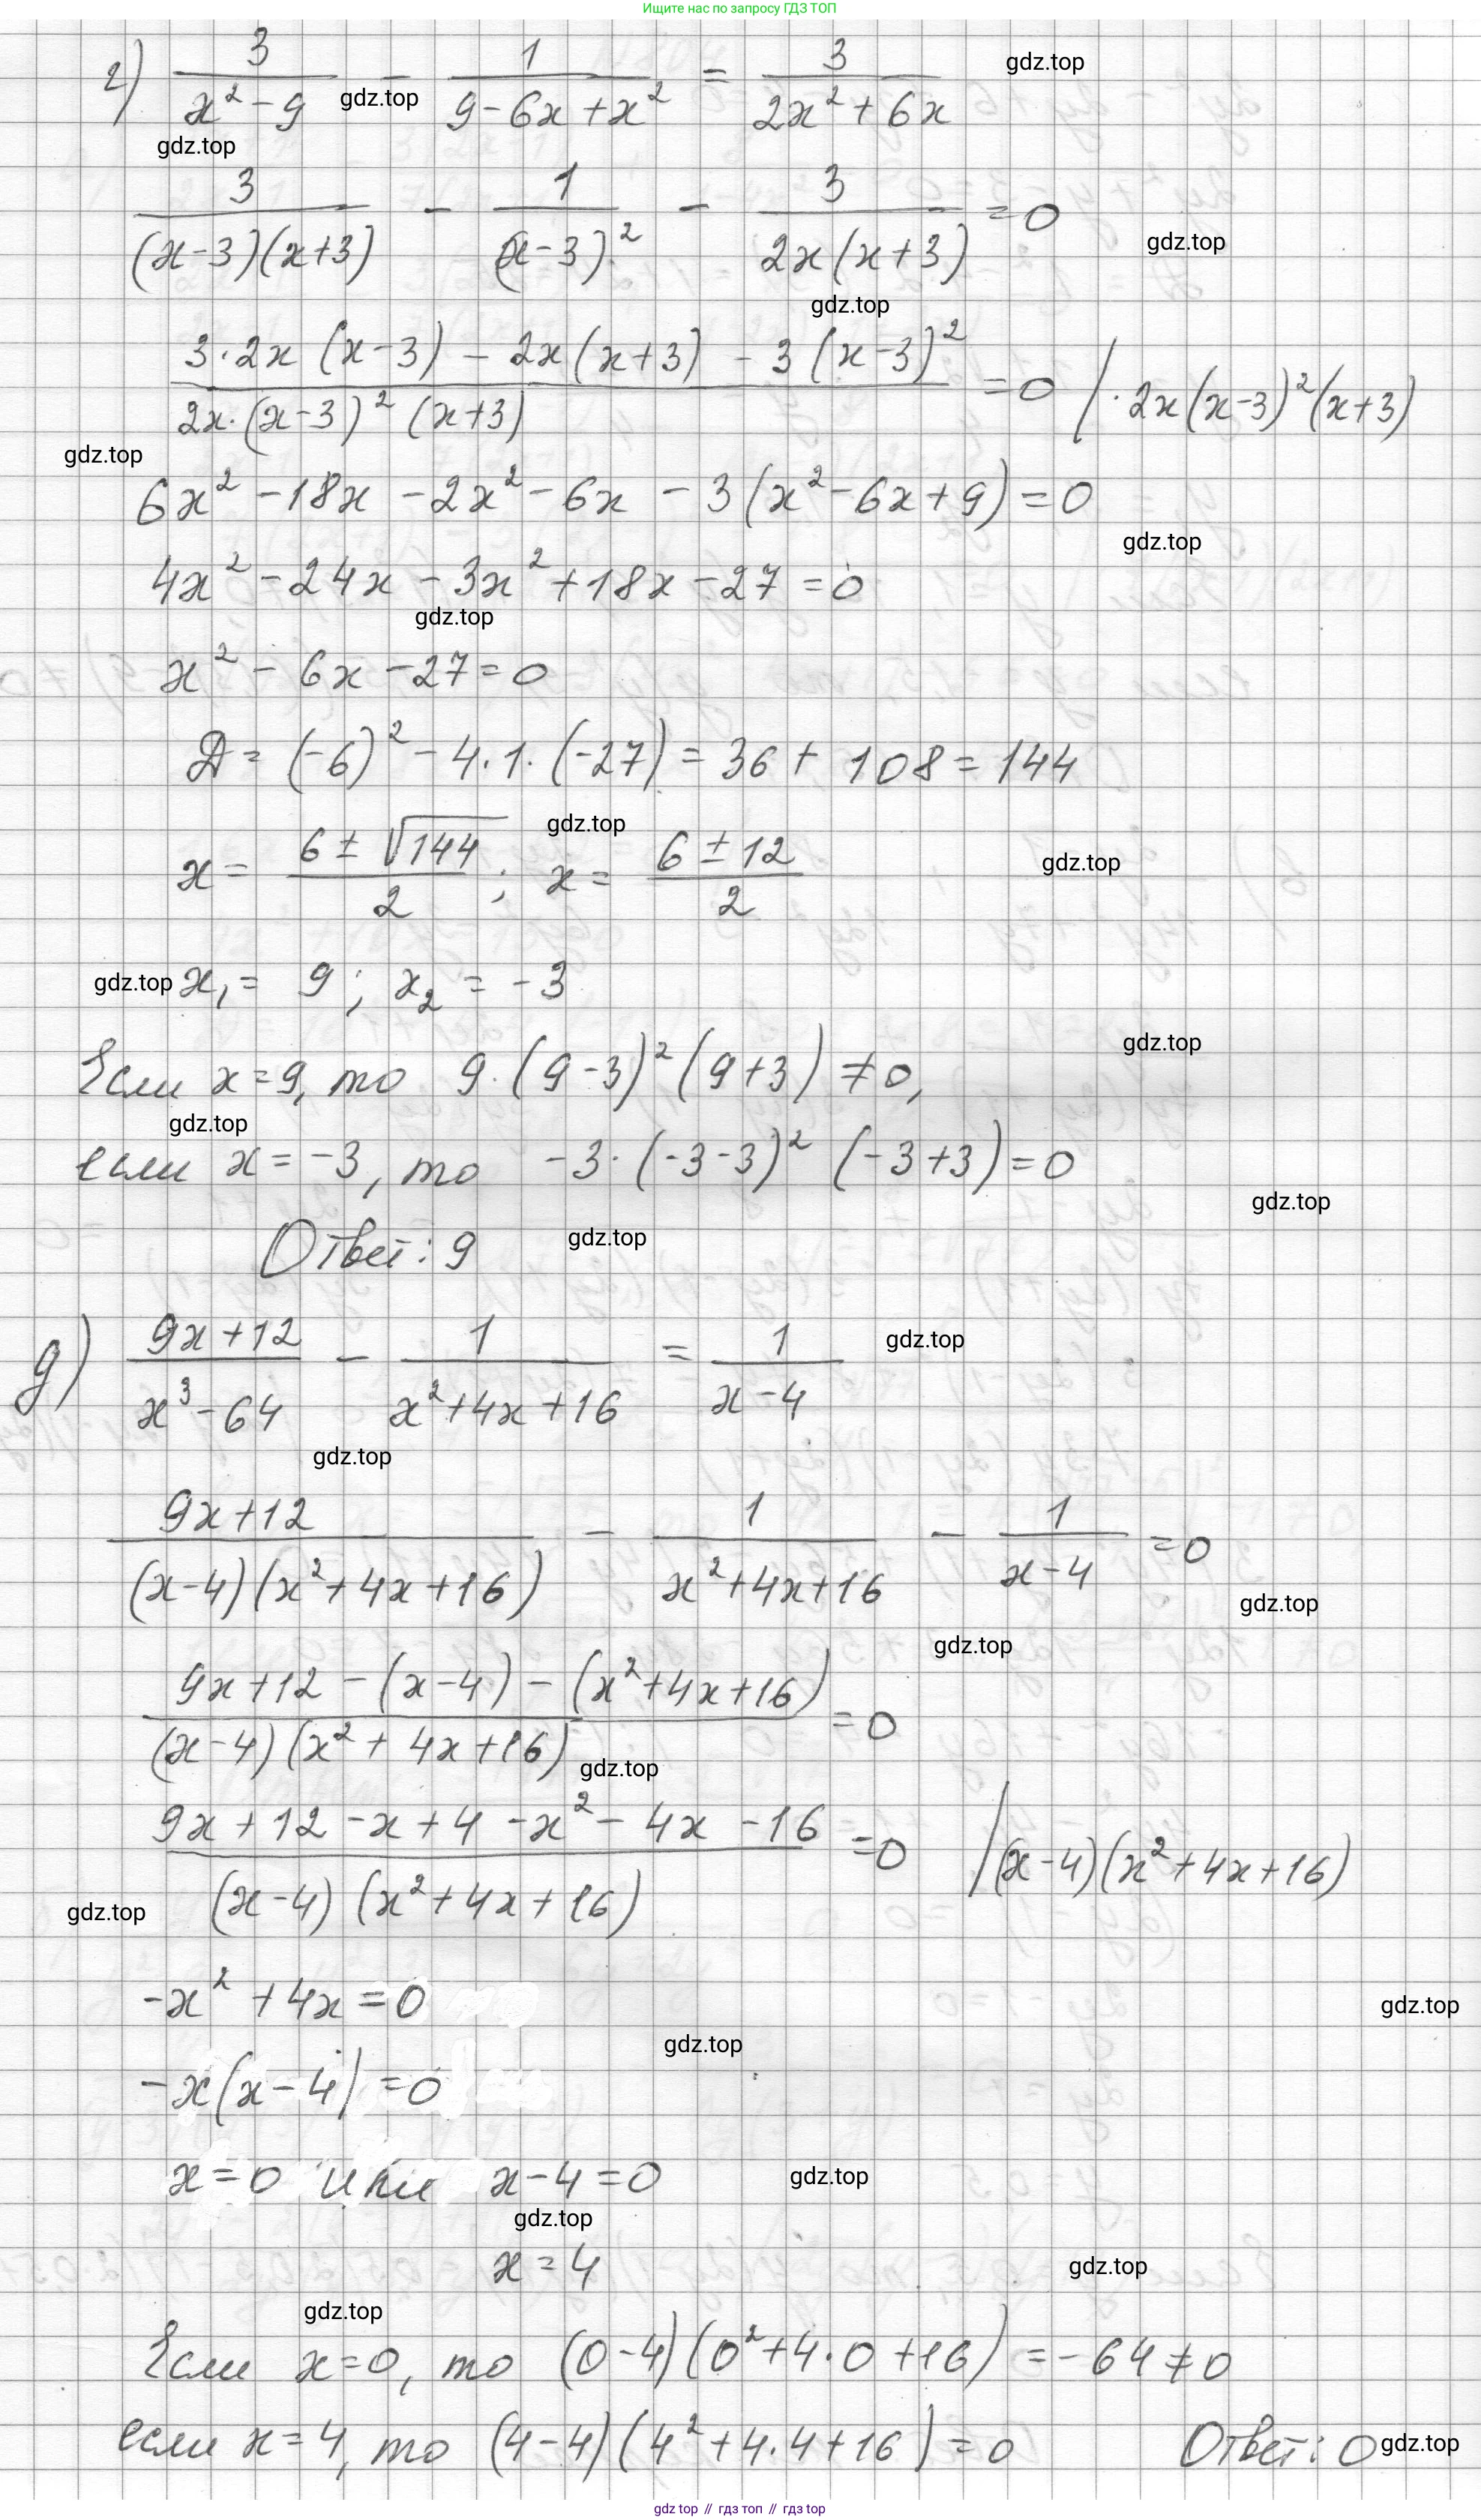 Ищите нас по запросу ГДЗ ТОП
г) 3/(x² - 9) - 1/(9 - 6x + x²) = 3/(2x² + 6x)
gdz.top
gdz.top
gdz.top
3/((x-3)(x+3)) - 1/(x-3)² - 3/(2x(x+3)) = 0
gdz.top
gdz.top
(3·2x(x-3) - 2x(x+3) - 3(x-3)²)/(2x·(x-3)²(x+3)) = 0 / · 2x(x-3)²(x+3)
gdz.top
6x² - 18x - 2x² - 6x - 3(x² - 6x + 9) = 0
gdz.top
4x² - 24x - 3x² + 18x - 27 = 0
gdz.top
x² - 6x - 27 = 0
Д = (-6)² - 4·1·(-27) = 36 + 108 = 144
x = (6 ± √144)/2 ; x = (6 ± 12)/2
gdz.top
gdz.top
gdz.top
x₁ = 9 ; x₂ = -3
gdz.top
Если x = 9, то 9·(9-3)²(9+3) ≠ 0,
gdz.top
если x = -3, то -3·(-3-3)² (-3+3) = 0
gdz.top
Ответ: 9
gdz.top
д) (9x+12)/(x³ - 64) - 1/(x² + 4x + 16) = 1/(x-4)
gdz.top
gdz.top
(9x+12)/((x-4)(x² + 4x + 16)) - 1/(x² + 4x + 16) - 1/(x-4) = 0
gdz.top
gdz.top
(9x+12 - (x-4) - (x² + 4x + 16))/((x-4)(x² + 4x + 16)) = 0
gdz.top
(9x + 12 - x + 4 - x² - 4x - 16)/((x-4)(x² + 4x + 16)) = 0 /(x-4)(x² + 4x + 16)
gdz.top
-x² + 4x = 0
gdz.top
gdz.top
-x(x-4) = 0
x = 0 или x - 4 = 0
gdz.top
gdz.top
x = 4
gdz.top
gdz.top
Если x = 0, то (0-4)(0² + 4·0 + 16) = -64 ≠ 0
если x = 4, то (4-4)(4² + 4·4 + 16) = 0 Ответ: 0
gdz.top
gdz top // гдз топ // гдз top